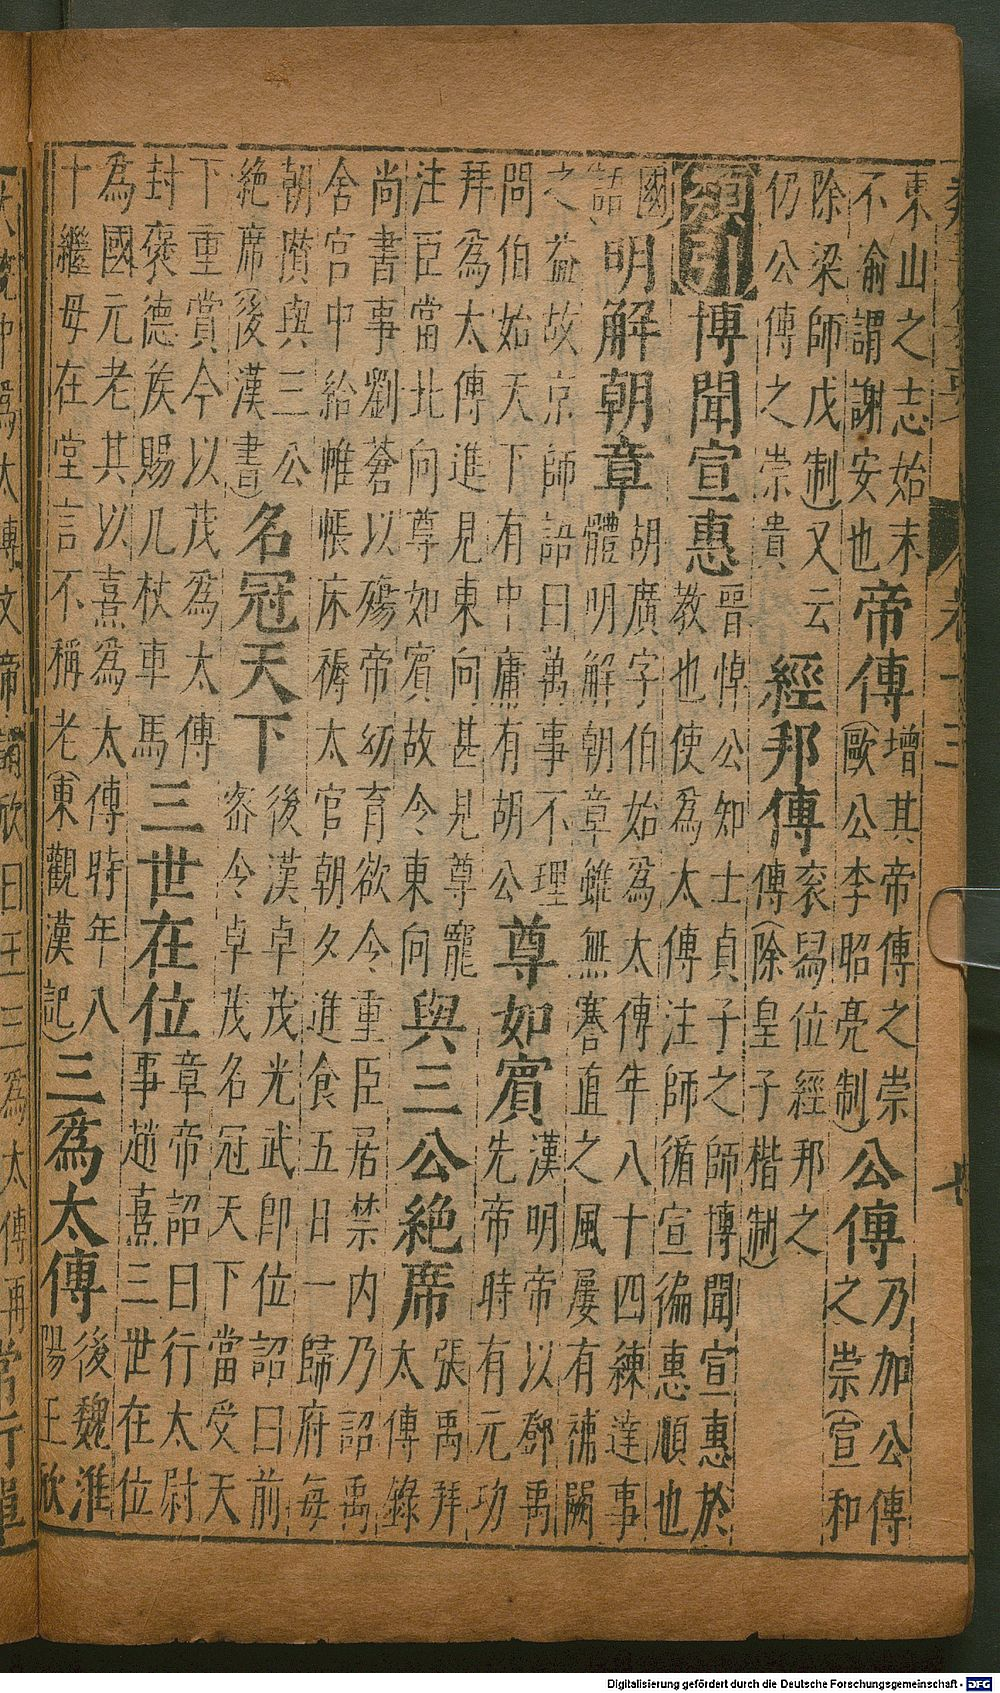 東山之志始末不渝謂謝安也帝傳增其帝傳之崇(歐公李昭亮制)公傳乃加公傳之崇(宣和
除梁師戊制)又云仍公傳之崇貴經邦傳衮舄位經邦之傳(除皇子楷制)
類引博聞宣惠晉悼公知士貞子之師博聞宣惠於教也使為太傅注師循宣徧惠順也
(國語)明解朝章胡廣字伯始為太傅年八十四練達事體明解朝章雖無謇直之風屢有補闕
之益故京師諺曰萬事不理問伯始天下有中庸有胡公尊如賓漢明帝以鄧禹先帝時有元功
拜為太傅進見東向甚見尊寵注臣當北向尊如賓故令東向與三公絶席張禹拜太傅錄
尚書事劉蒼以殤帝幼育欲令重臣居禁内乃詔禹舍宮中給帷帳床褥太官朝夕進食五日一歸府每
朝攢與三公絶席(後漢書)名冠天下後漢卓茂光武即位詔曰前密令卓茂名冠天下當受天
下重賞今以茂為太傅封褒德矦賜几杖車馬三世在位章帝詔曰行太尉事趙憙三世在位
為國元老其以憙為太傅時年八十繼母在堂言不稱老(東觀漢記)三為太傅後魏淮陽王欣
大統中為太傅文帝謂欣曰王三為太傅再
Digitalisierung gefördert durch die Deutsche Forschungsgemeinschaft - DFG